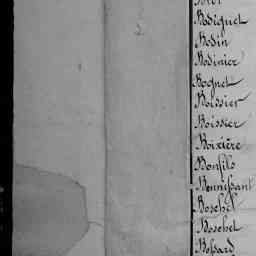 Bodiguel
Bodin
Bodinier
Bognet
Boissier
Boissier
Boixière
Bonfils
Bonnissant
Boschel
Boschel
Bossard